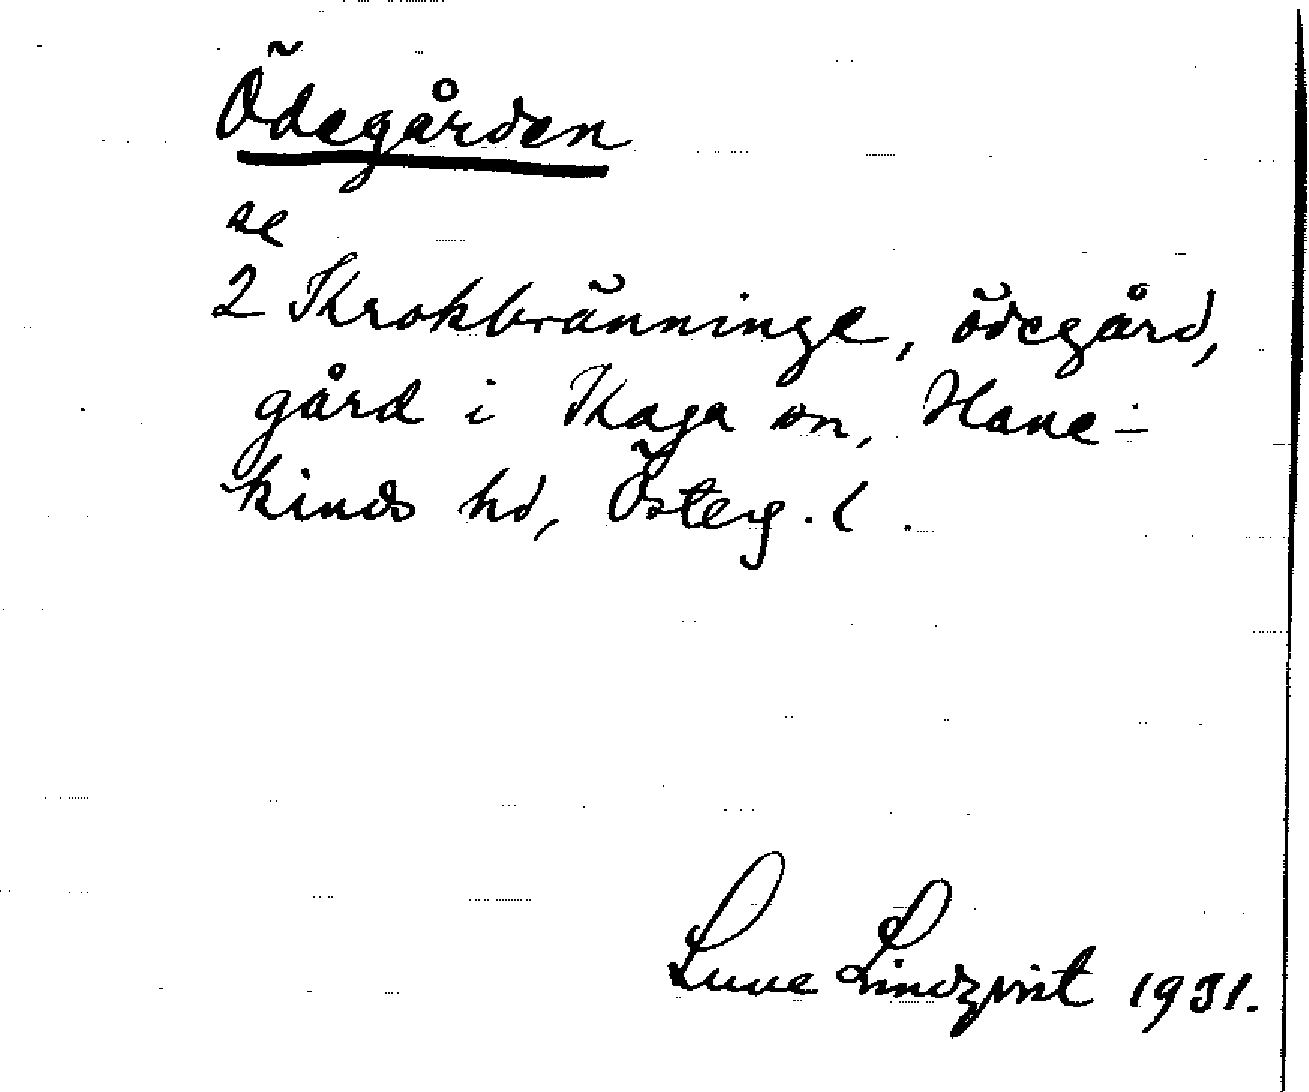 Ödegården
se
2 Krokbränninge, ödegård,
gård i Kaga sn, Hane-
kinds hd, Österg. l.
Sune Lindqvist 1931.